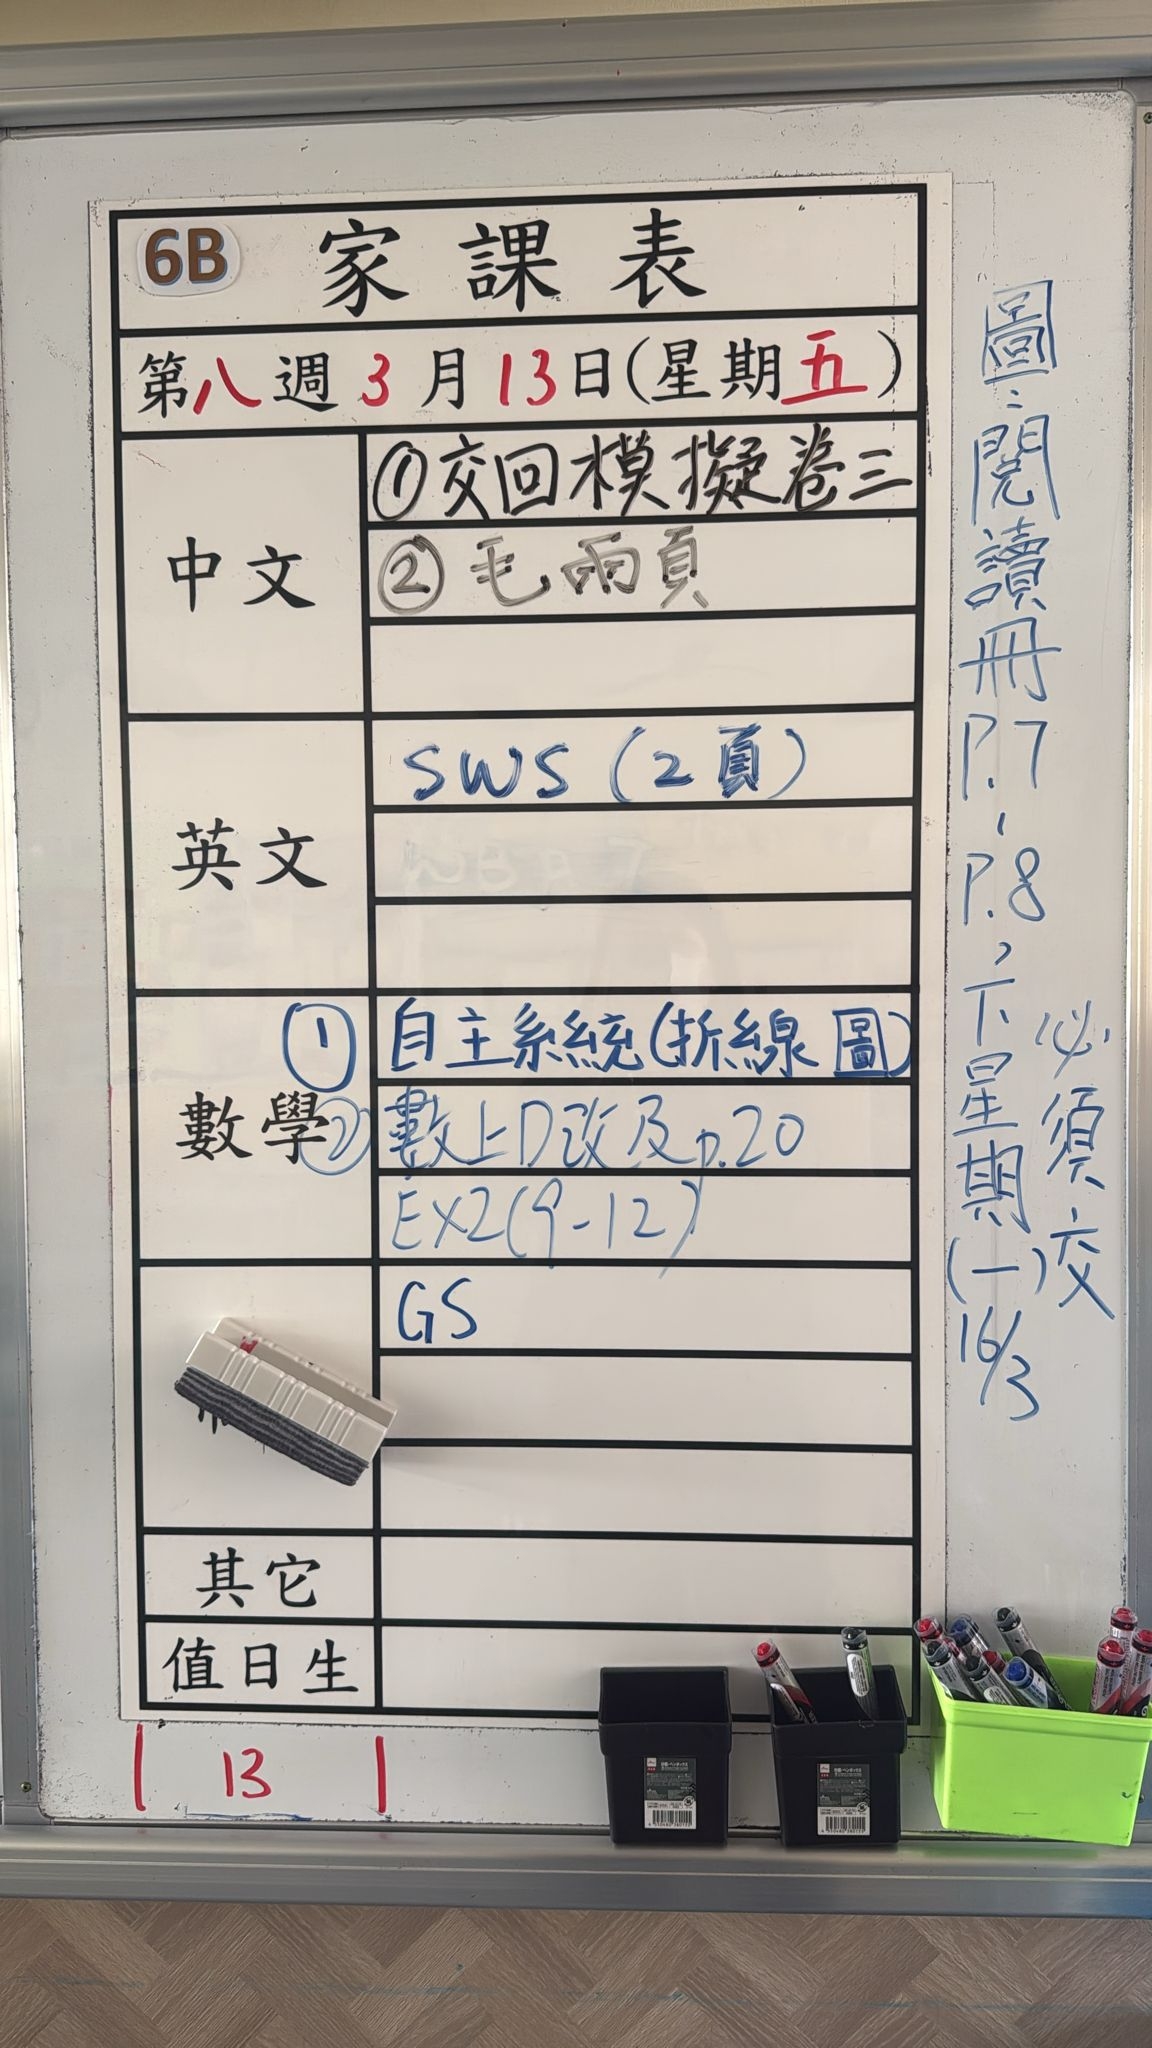 6B 家課表
第八週 3月13日(星期五)
中文
①交回模擬卷三
②毛兩頁
英文
SWS(2頁)
數學
①自主系統(折線圖)
②數上D改及p.20
Ex2(9-12)
GS
其它
值日生
13
圖:閱讀冊P.7、P.8,下星期(一)16/3
必須交